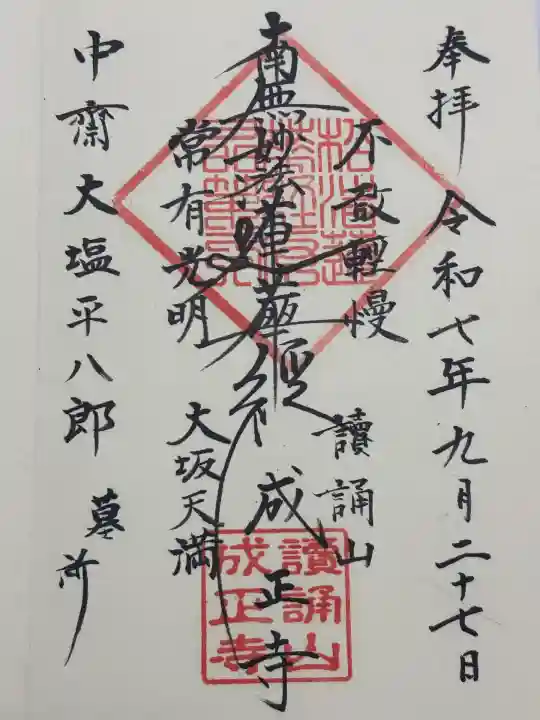 奉拝 令和七年九月二十七日
不敢輕慢
讀誦山
南無妙法蓮華経
成正寺
常有光明
大坂天満
中齋大塩平八郎
墓所
讀誦山
成正寺